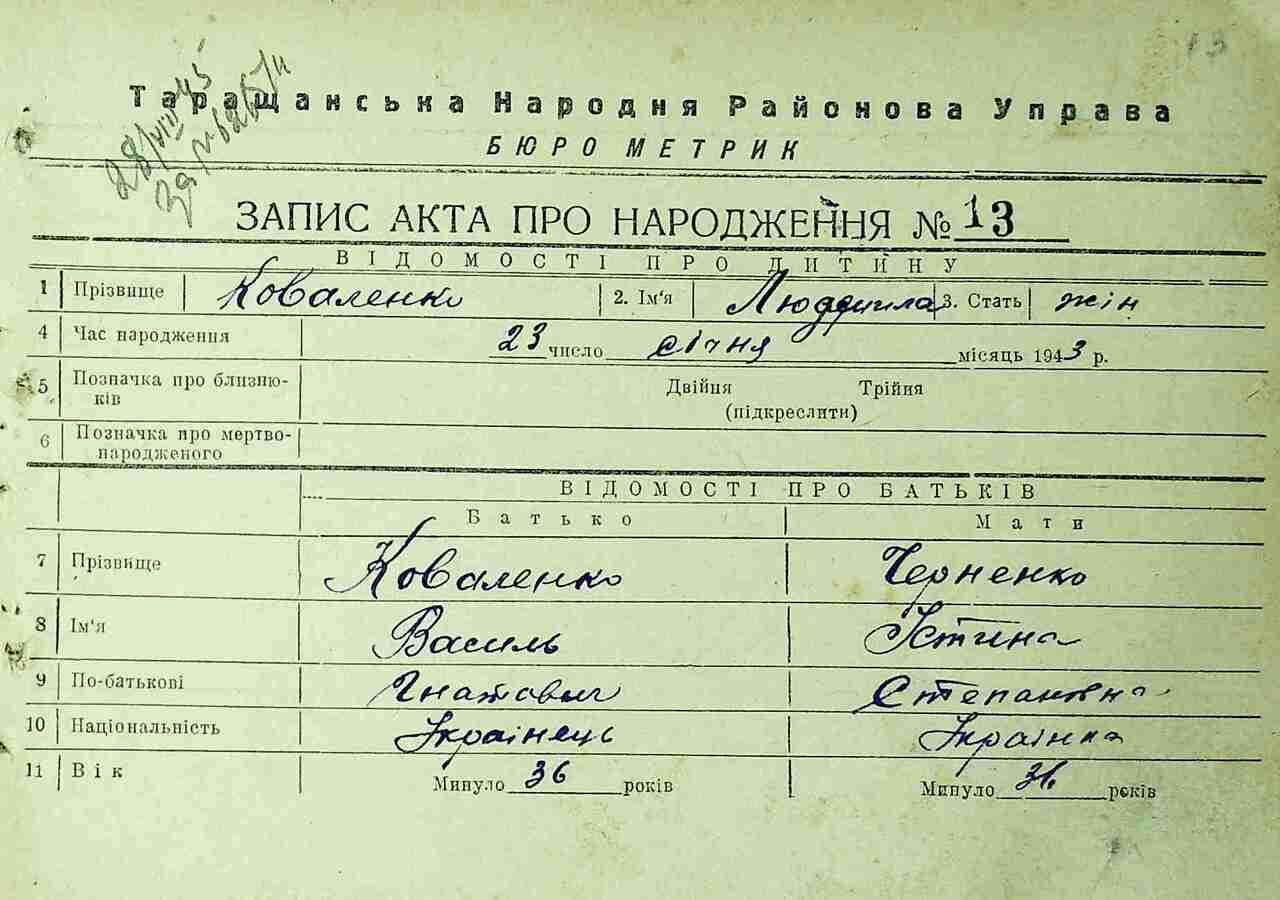 13
28/VIII 45
Таращанська Народня Районова Управа
БЮРО МЕТРИК
ЗАПИС АКТА ПРО НАРОДЖЕННЯ № 13
ВІДОМОСТІ ПРО ДИТИНУ
1 Прізвище Коваленко 2. Ім'я Людмила 3. Стать жін
4 Час народження 23 число січня місяць 1943 р.
5 Позначка про близню- Двійня Трійня
ків (підкреслити)
6 Позначка про мертво-
народженого
ВІДОМОСТІ ПРО БАТЬКІВ
Батько Мати
7 Прізвище Коваленко Черненко
8 Ім'я Василь Устина
9 По-батькові Гнатович Степановна
10 Національність Українець Українка
11 Вік Минуло 36 років Минуло 36 років